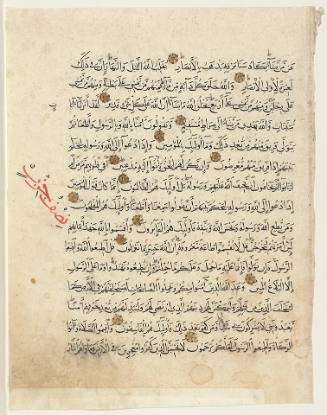 عن من يشاء يكاد سنا برقه يذهب بالابصار يقلب الله الليل والنهار ان في ذلك
لعبرة لاولي الابصار والله خلق كل دابة من ماء فمنهم من يمشي على بطنه ومنهم من يمشي
على رجلين ومنهم من يمشي على اربع يخلق الله ما يشاء ان الله على كل شيء قدير لقد انزلنا ايا
ت مبينات والله يهدي من يشاء الى صراط مستقيم ويقولون امنا بالله وبالرسول واطعنا ثم
يتولى فريق منهم من بعد ذلك وما اولئك بالمؤمنين واذا دعوا الى الله ورسوله ليحكم
بينهم اذا فريق منهم معرضون وان يكن لهم الحق يأتوا اليه مذعنين افي قلوبهم مرض
ام ارتابوا ام يخافون ان يحيف الله عليهم ورسوله بل اولئك هم الظالمون انما كان قول المؤمنين
اذا دعوا الى الله ورسوله ليحكم بينهم ان يقولوا سمعنا واطعنا واولئك هم المفلحون
ومن يطع الله ورسوله ويخش الله ويتقه فاولئك هم الفائزون واقسموا بالله جهد ايمانهم
لئن امرتهم ليخرجن قل لا تقسموا طاعة معروفة ان الله خبير بما تعملون قل اطيعوا الله واطيعوا
الرسول فان تولوا فانما عليه ما حمل وعليكم ما حملتم وان تطيعوه تهتدوا وما على الرسول
الا البلاغ المبين وعد الله الذين امنوا منكم وعملوا الصالحات ليستخلفنهم في الارض كما
استخلف الذين من قبلهم وليمكنن لهم دينهم الذي ارتضى لهم وليبدلنهم من بعد خوفهم امنا
يعبدونني لا يشركون بي شيئا ومن كفر بعد ذلك فاولئك هم الفاسقون واقيموا الصلاة واتوا
الزكاة واطيعوا الرسول لعلكم ترحمون لا تحسبن الذين كفروا معجزين في الارض ومأواهم النار
نصف حزب